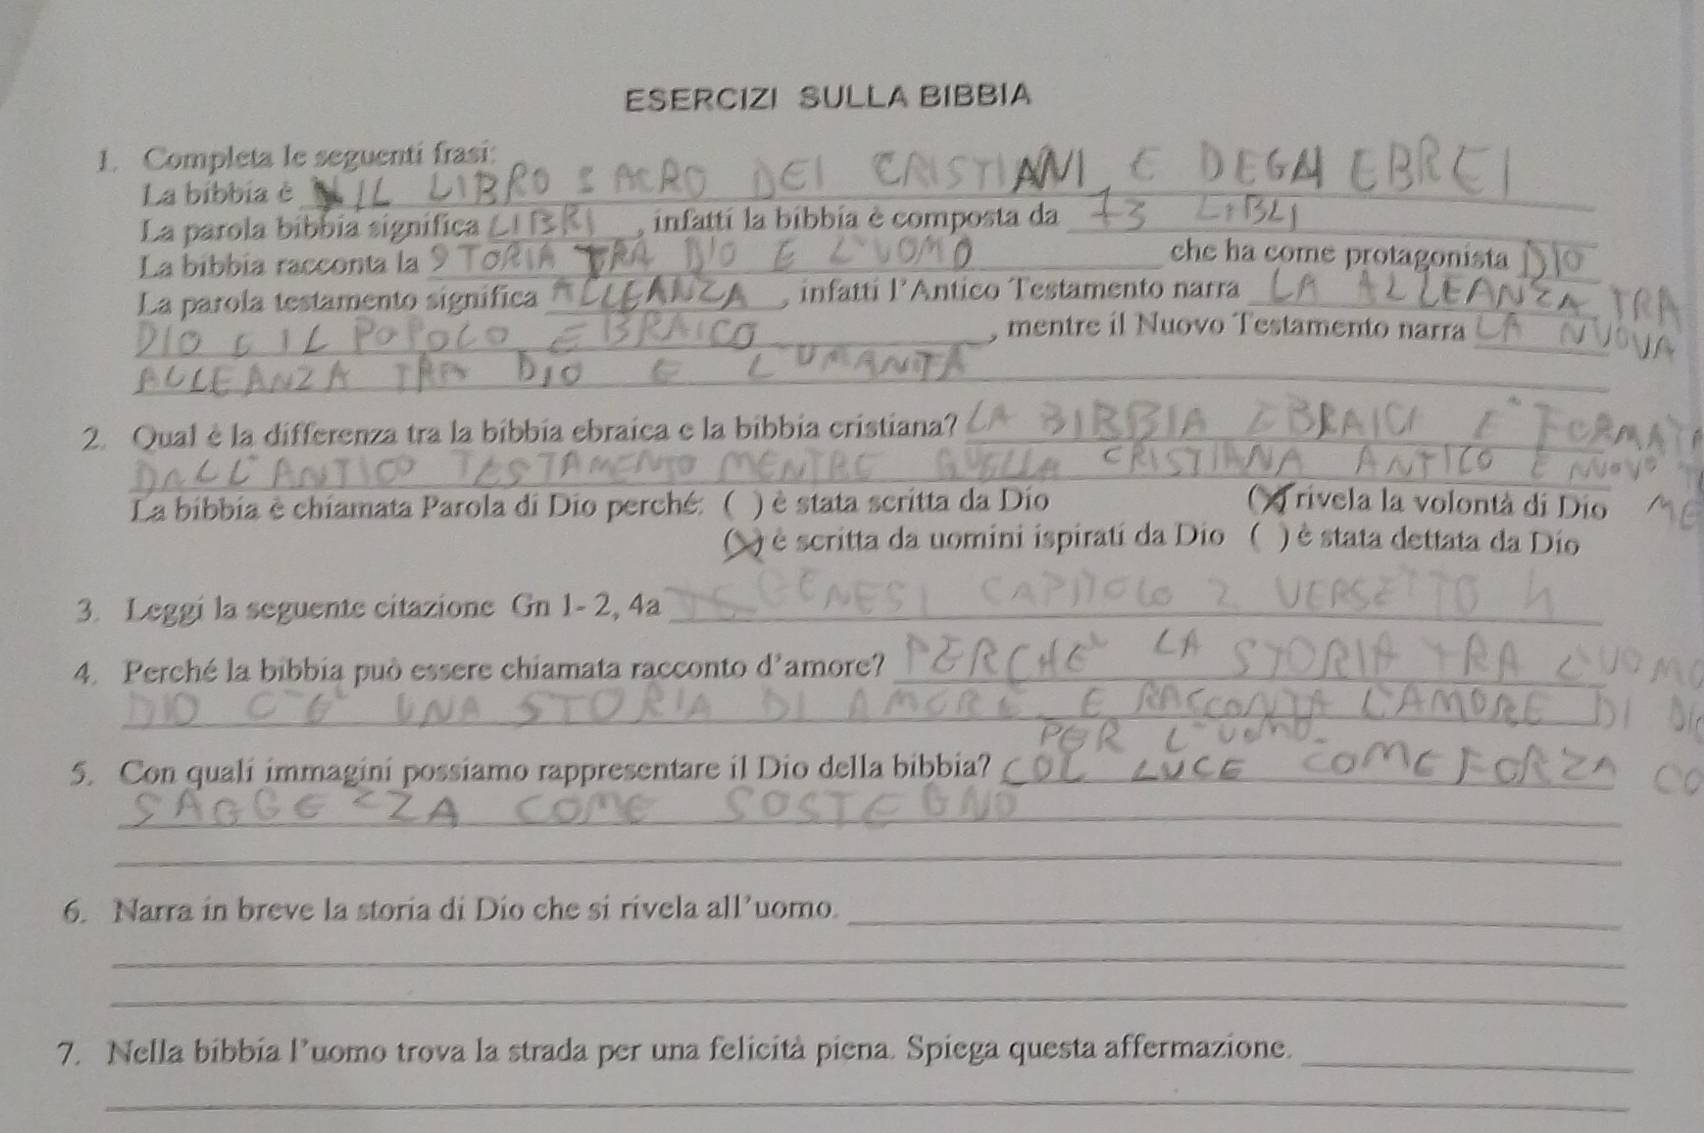 ESERCIZI SULLA BIBBIA
1. Completa le seguenti frasi:
La bibbia è IL LIBRO SACRO DEI CRISTIANI, E DEGLI EBREI
La parola bibbia significa LIBRI, infatti la bibbia è composta da 73 LIBLI
La bibbia racconta la STORIA TRA DIO E L'UOMO che ha come protagonista DIO
La parola testamento significa ALLEANZA, infatti l'Antico Testamento narra LA ALLEANZA TRA
DIO E IL POPOLO EBRAICO, mentre il Nuovo Testamento narra LA NUOVA
ALLEANZA TRA DIO E L'UMANITÀ
2. Qual è la differenza tra la bibbia ebraica e la bibbia cristiana? LA BIBBIA EBRAICA E' FORMATA
DALL'ANTICO TESTAMENTO MENTRE QUELLA CRISTIANA ANTICO E NUOVO
La bibbia è chiamata Parola di Dio perché: ( ) è stata scritta da Dio (X) rivela la volontà di Dio
(X) è scritta da uomini ispirati da Dio ( ) è stata dettata da Dio
3. Leggi la seguente citazione Gn 1- 2, 4a GENESI CAPITOLO 2 VERSETTO 4
4. Perché la bibbia può essere chiamata racconto d'amore? PERCHE' LA STORIA TRA L'UOMO
DIO C'E' UNA STORIA DI AMORE E RACCONTA L'AMORE DI DIO
PER L'UOMO.
5. Con quali immagini possiamo rappresentare il Dio della bibbia? COL LUCE COME FORZA CO
SAGGEZZA COME SOSTEGNO
6. Narra in breve la storia di Dio che si rivela all'uomo.
7. Nella bibbia l'uomo trova la strada per una felicità piena. Spiega questa affermazione.